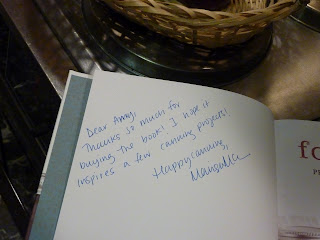 Dear Amy,
Thanks so much for
buying the book! I hope it
inspires a few canning projects!
Happy canning,
Marisa
fo
P